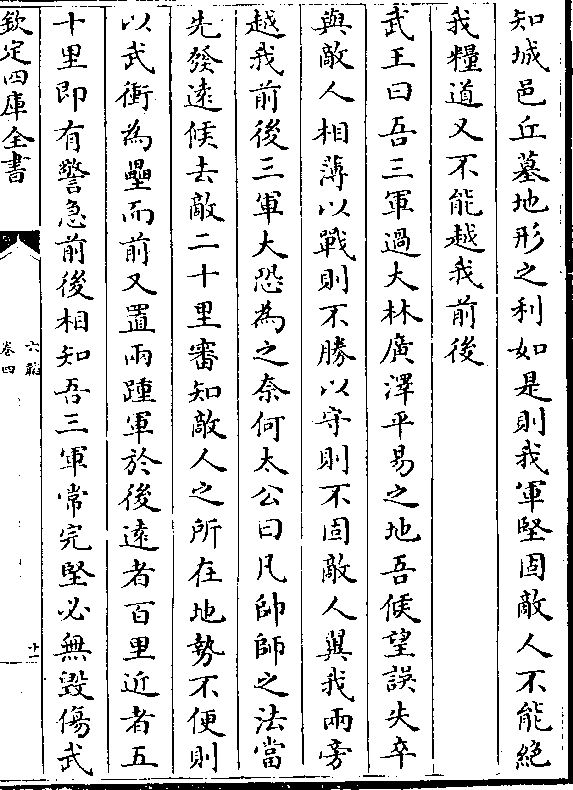 知城邑丘墓地形之利如是則我軍堅固敵人不能絶
我糧道又不能越我前後
武王曰吾三軍過大林廣澤平易之地吾候望誤失卒
與敵人相薄以戰則不勝以守則不固敵人翼我兩旁
越我前後三軍大恐為之奈何太公曰凡帥師之法當
先發逺候去敵二十里審知敵人之所在地勢不便則
以武衝為壘而前又置兩踵軍於後逺者百里近者五
十里即有警急前後相知吾三軍常完堅必無毀傷武
欽定四庫全書
六韜
卷四
十一